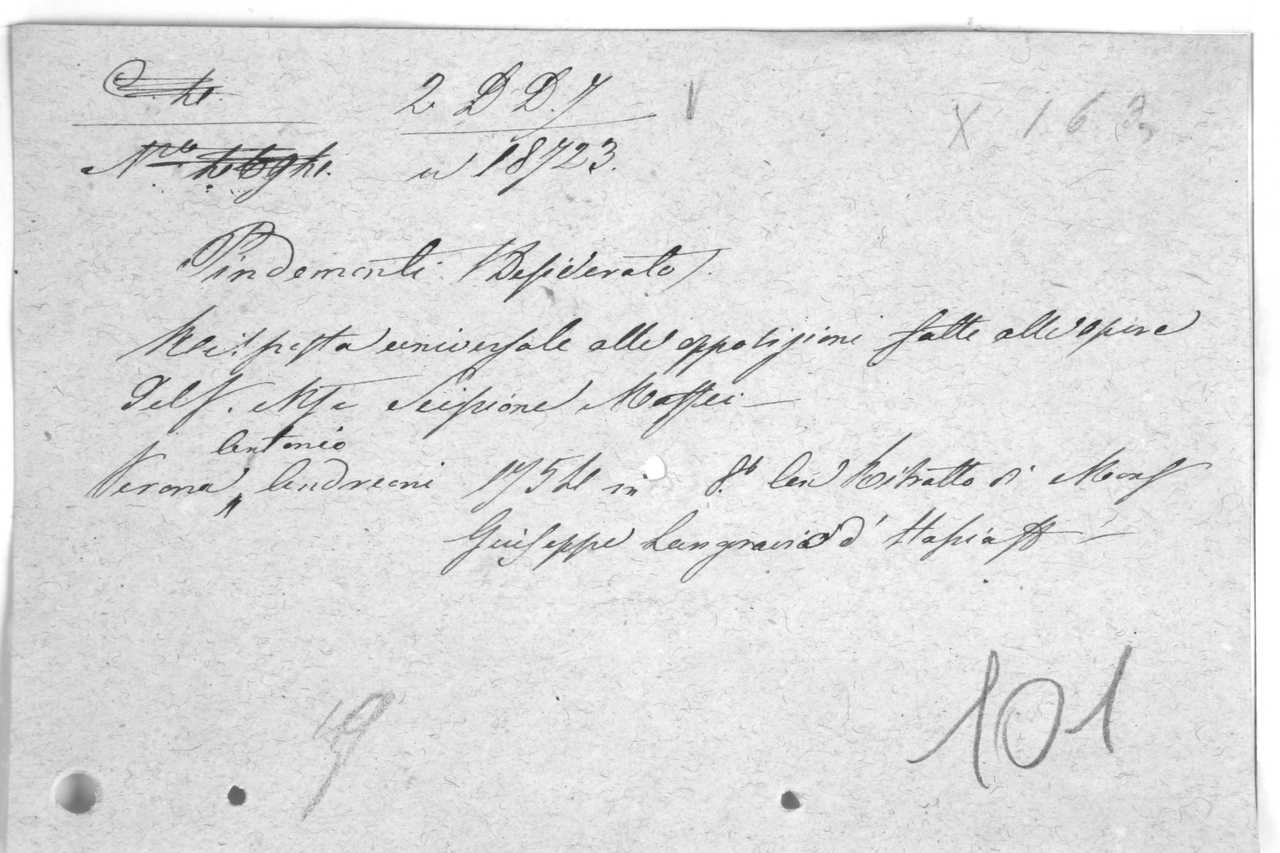 2 D D. 7 V X 163
Nro n 18723.
Pindemonti (Desiderato).
Risposta universale alle opposizioni fatte alle opere
del S. Mse Scipione Maffei —
Antonio
Verona, Andreoni 1754 in 8.º Con Ritratto di Mons
Giuseppe
101